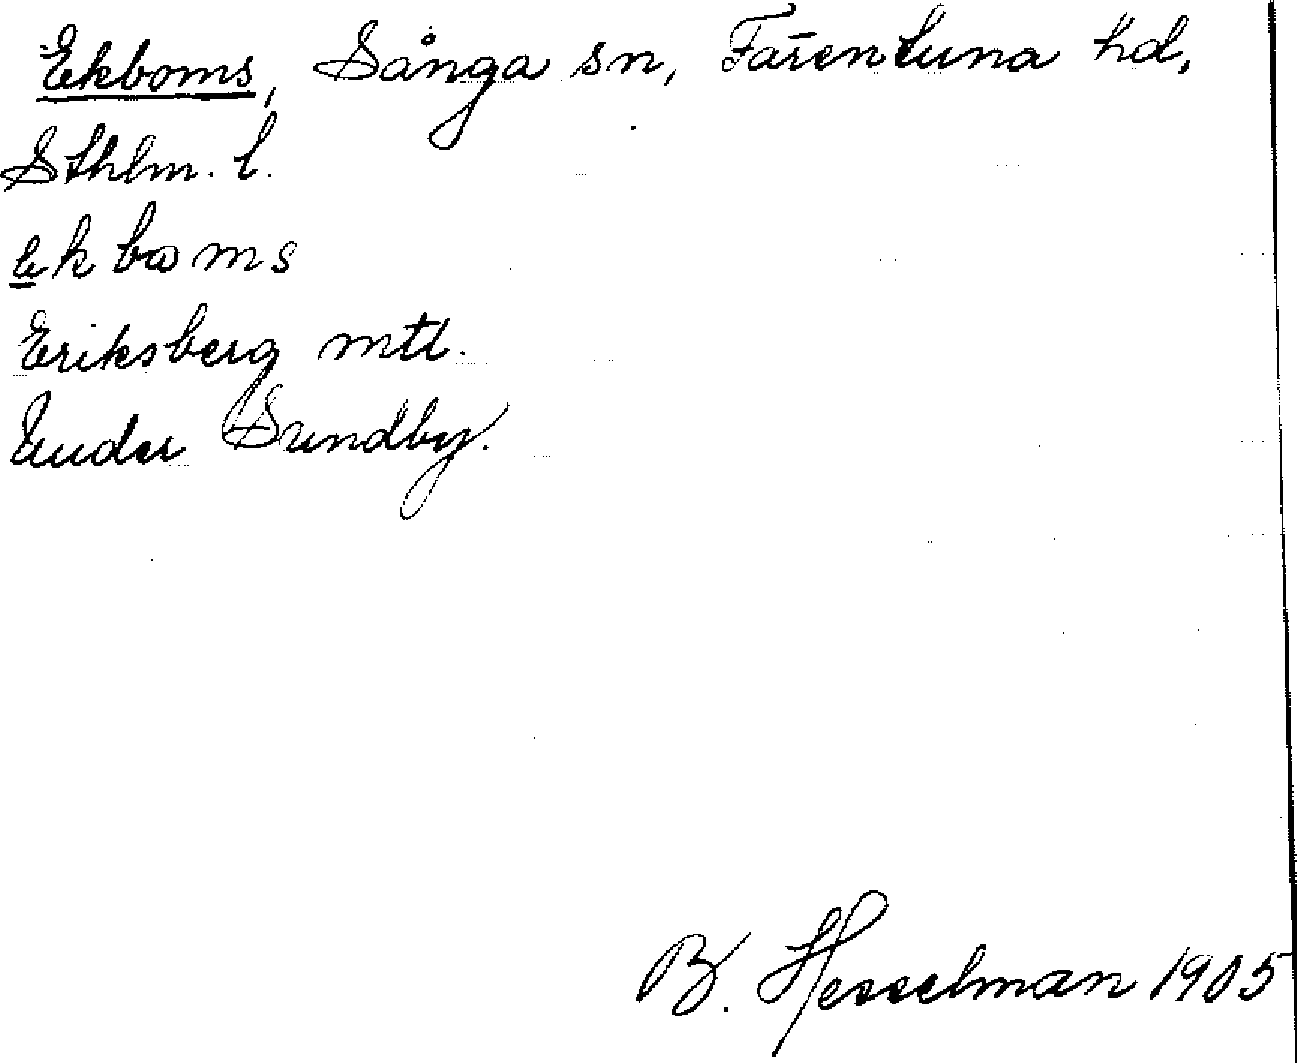 Ekboms, Sånga sn, Färentuna hd,
Sthlm. l.
ekboms
Eriksberg mtl.
Under Sundby.
B. Hesselman 1905